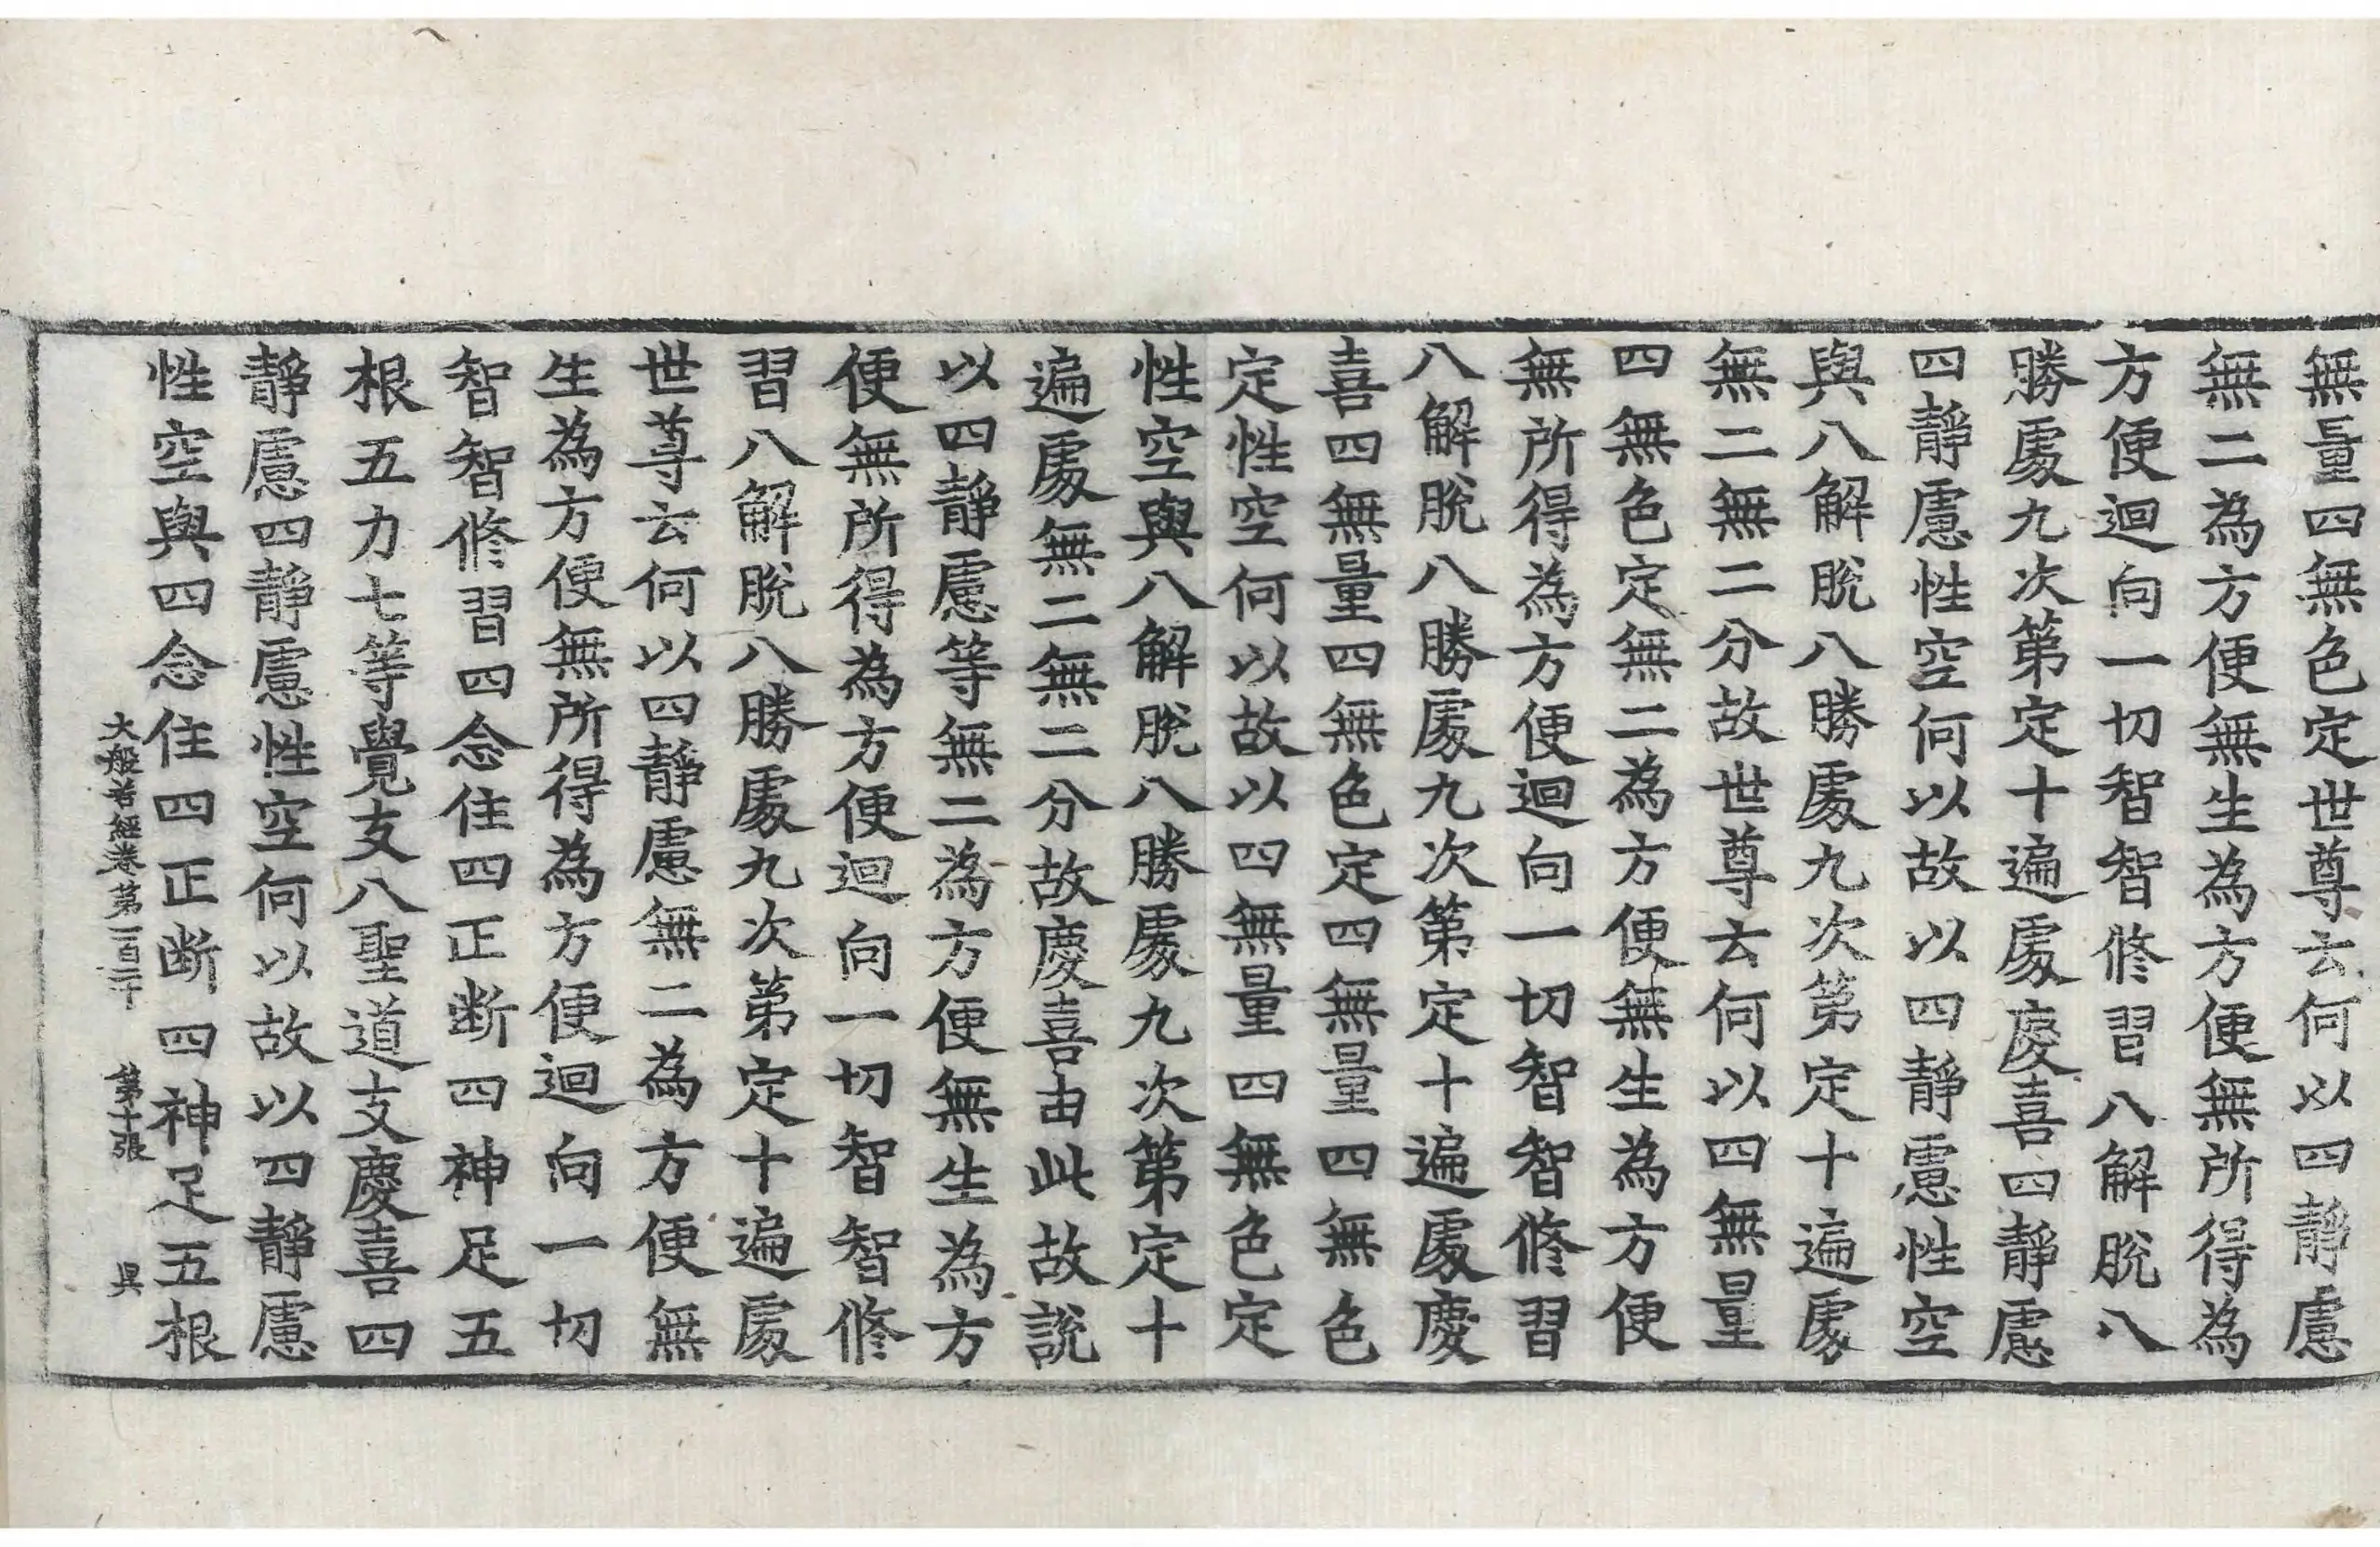 無量四無色定世尊云何以四靜慮
無二為方便無生為方便無所得為
方便迴向一切智智修習八解脫八
勝處九次第定十遍處慶喜四靜慮
四靜慮性空何以故以四靜慮性空
與八解脫八勝處九次第定十遍處
無二無二分故世尊云何以四無量
四無色定無二為方便無生為方便
無所得為方便迴向一切智智修習
八解脫八勝處九次第定十遍處慶
喜四無量四無色定四無量四無色
定性空何以故以四無量四無色定
性空與八解脫八勝處九次第定十
遍處無二無二分故慶喜由此故說
以四靜慮等無二為方便無生為方
便無所得為方便迴向一切智智修
習八解脫八勝處九次第定十遍處
世尊云何以四靜慮無二為方便無
生為方便無所得為方便迴向一切
智智修習四念住四正断四神足五
根五力七等覺支八聖道支慶喜四
靜慮四靜慮性空何以故以四靜慮
性空與四念住四正断四神足五根
大般若經卷第一百二十 第十張 昃